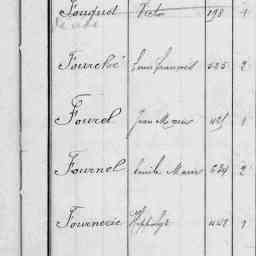 Fouquet Victor 198 1
Fourché Louis François 525 2
Fourel Jean Marie 421 1
Fournel Emile Marie 524 2
Fournerie Hippolyte 441 1